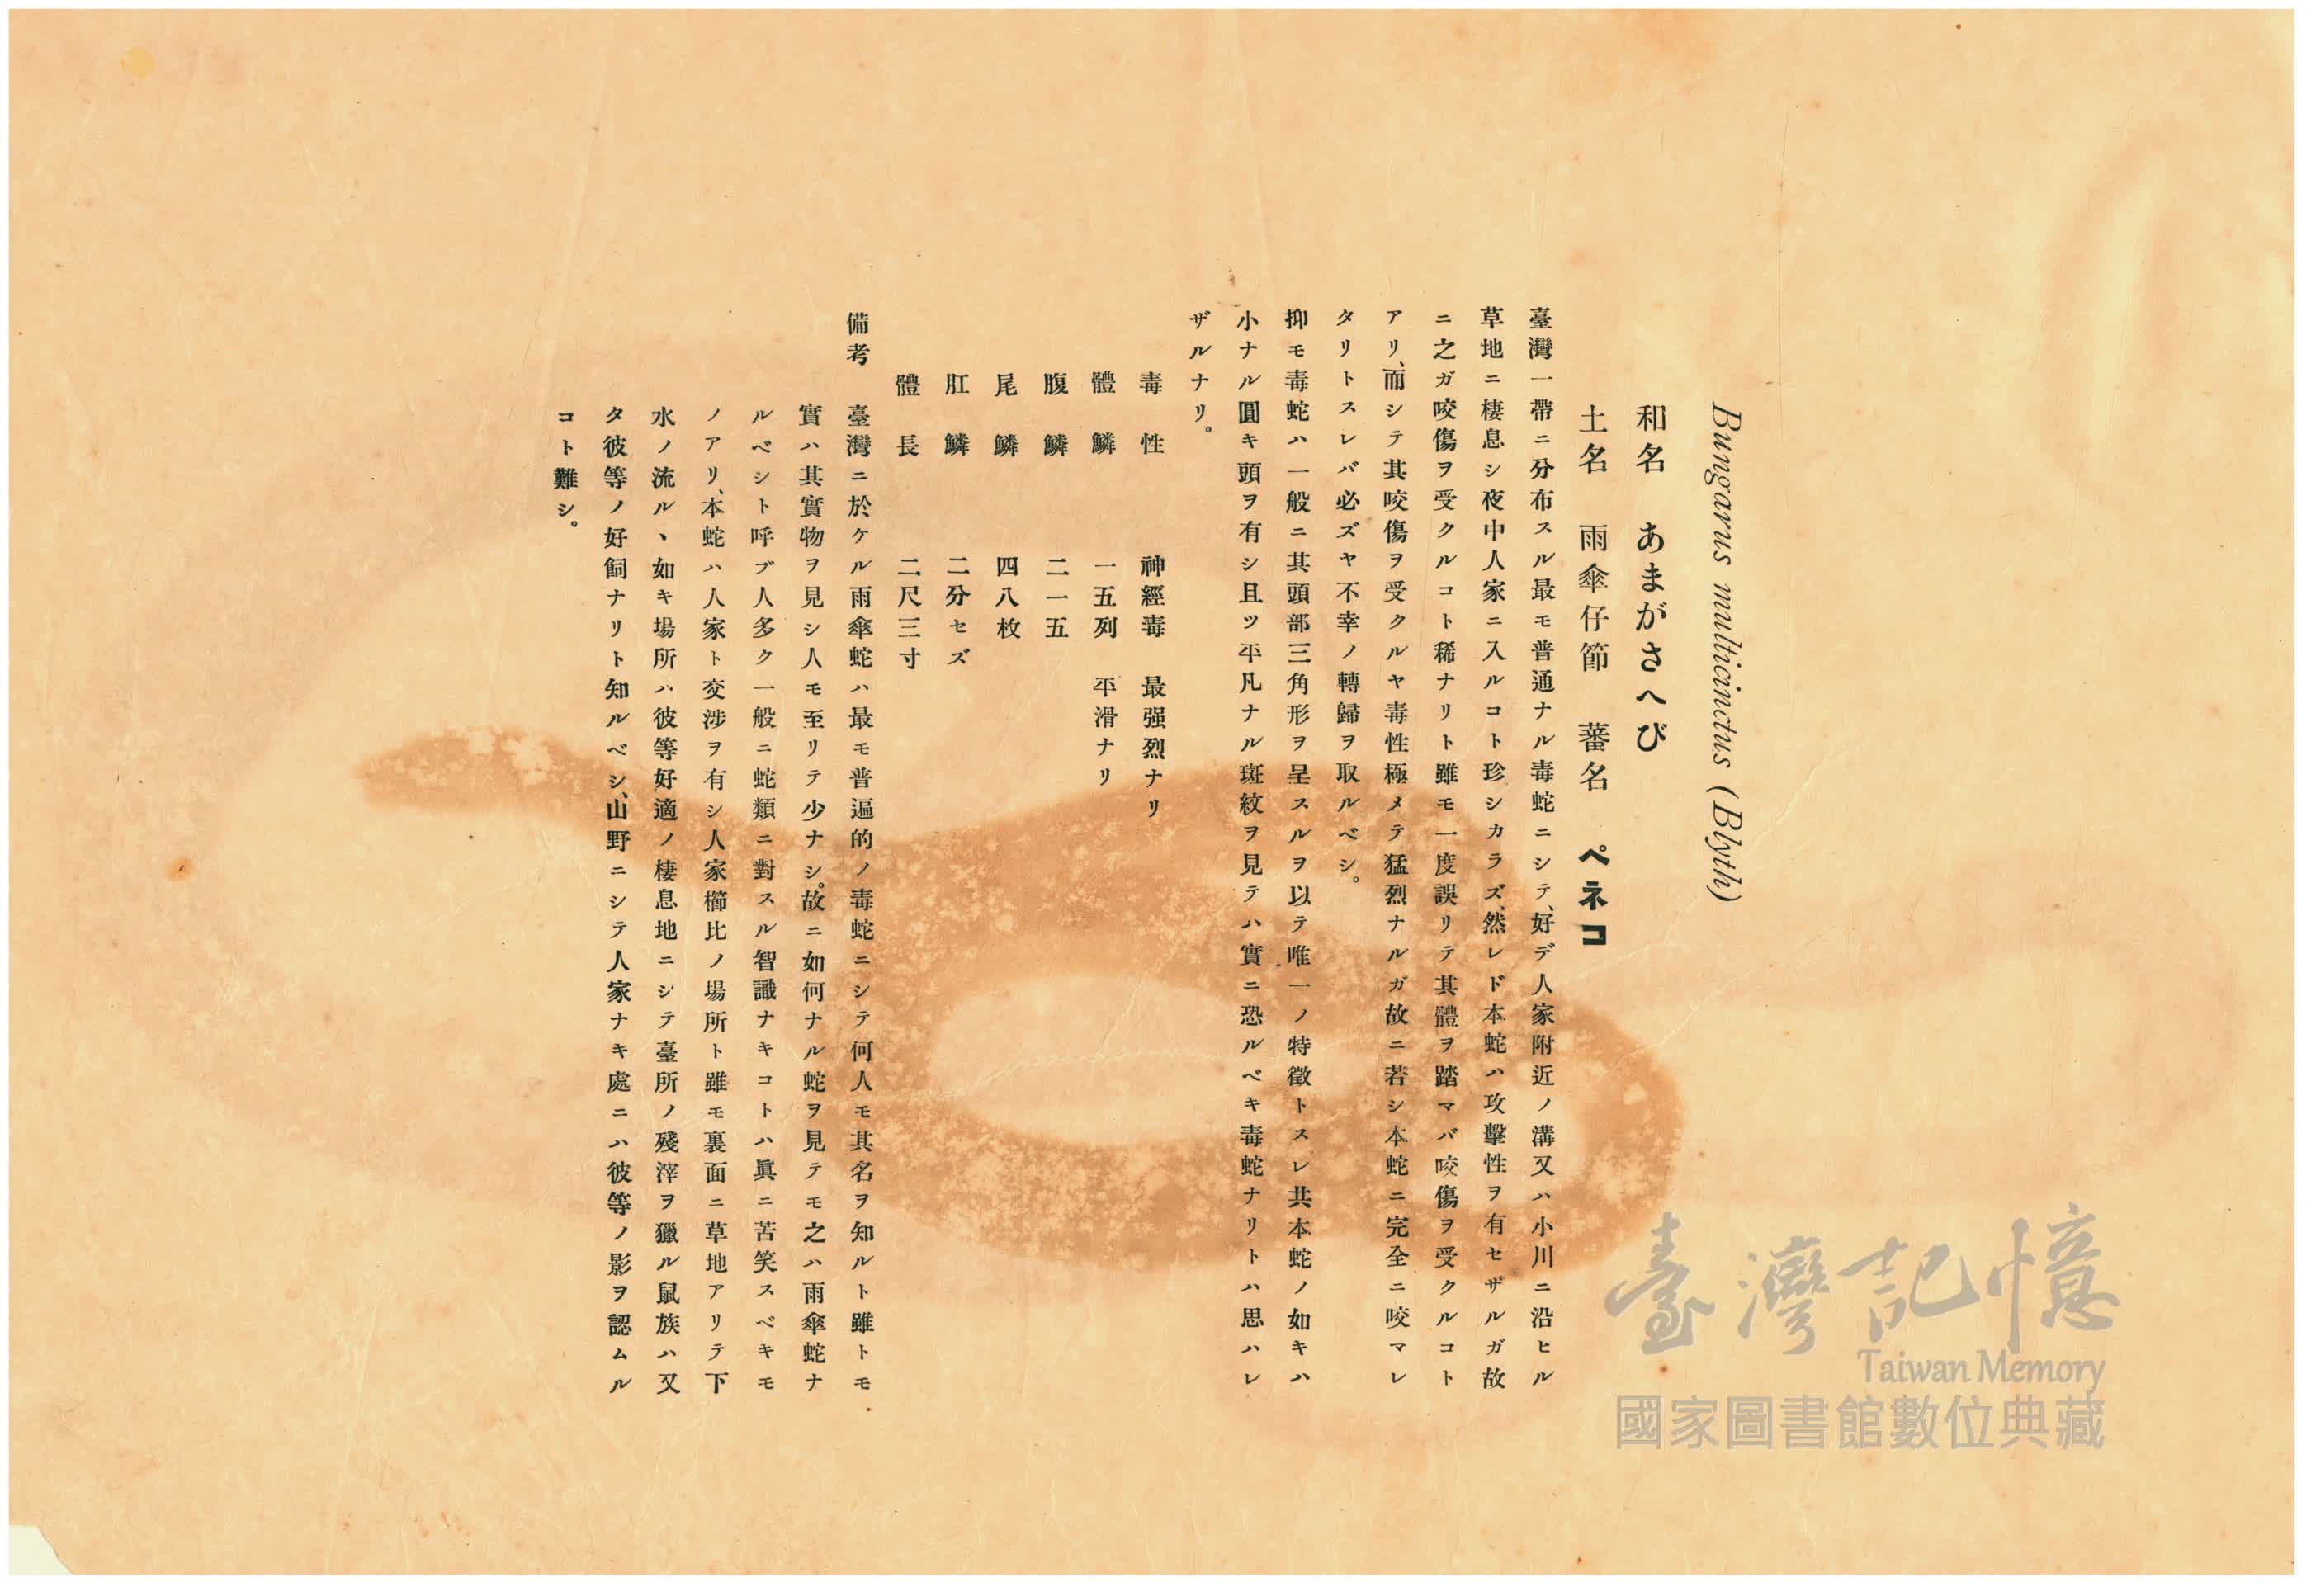 Bungarus multicinctus (Blyth)
和名 あまがさへび
土名 雨傘仔節 蕃名 ペネコ
臺灣一帶ニ分布スル最モ普通ナル毒蛇ニシテ、好デ人家附近ノ溝又ハ小川ニ沿ヒル
草地ニ棲息シ夜中人家ニ入ルコト珍シカラズ、然レド本蛇ハ攻擊性ヲ有セザルガ故
ニ之ガ咬傷ヲ受クルコト稀ナリト雖モ一度誤リテ其體ヲ踏マバ咬傷ヲ受クルコト
アリ、而シテ其咬傷ヲ受クルヤ毒性極メテ猛烈ナルガ故ニ若シ本蛇ニ完全ニ咬マレ
タリトスレバ必ズヤ不幸ノ轉歸ヲ取ルベシ。
抑モ毒蛇ハ一般ニ其頭部三角形ヲ呈スルヲ以テ唯一ノ特徵トスレ共本蛇ノ如キハ
小ナル圓キ頭ヲ有シ且ツ平凡ナル斑紋ヲ見テハ實ニ恐ルベキ毒蛇ナリトハ思ハレ
ザルナリ。
毒性 神經毒 最强烈ナリ
體鱗 一五列 平滑ナリ
腹鱗 二一五
尾鱗 四八枚
肛鱗 二分セズ
體長 二尺三寸
備考 臺灣ニ於ケル雨傘蛇ハ最モ普遍的ノ毒蛇ニシテ何人モ其名ヲ知ルト雖トモ
實ハ其實物ヲ見シ人モ至リテ少ナシ。故ニ如何ナル蛇ヲ見テモ之ハ雨傘蛇ナ
ルベシト呼ブ人多ク一般ニ蛇類ニ對スル智識ナキコトハ眞ニ苦笑スベキモ
ノアリ、本蛇ハ人家ト交涉ヲ有シ人家櫛比ノ場所ト雖モ裏面ニ草地アリテ下
水ノ流ルヽ如キ場所ハ彼等好適ノ棲息地ニシテ臺所ノ殘滓ヲ獵ル鼠族ハ又
タ彼等ノ好飼ナリト知ルベシ、山野ニシテ人家ナキ處ニハ彼等ノ影ヲ認ムル
コト難シ。
臺灣記憶
Taiwan Memory
國家圖書館數位典藏